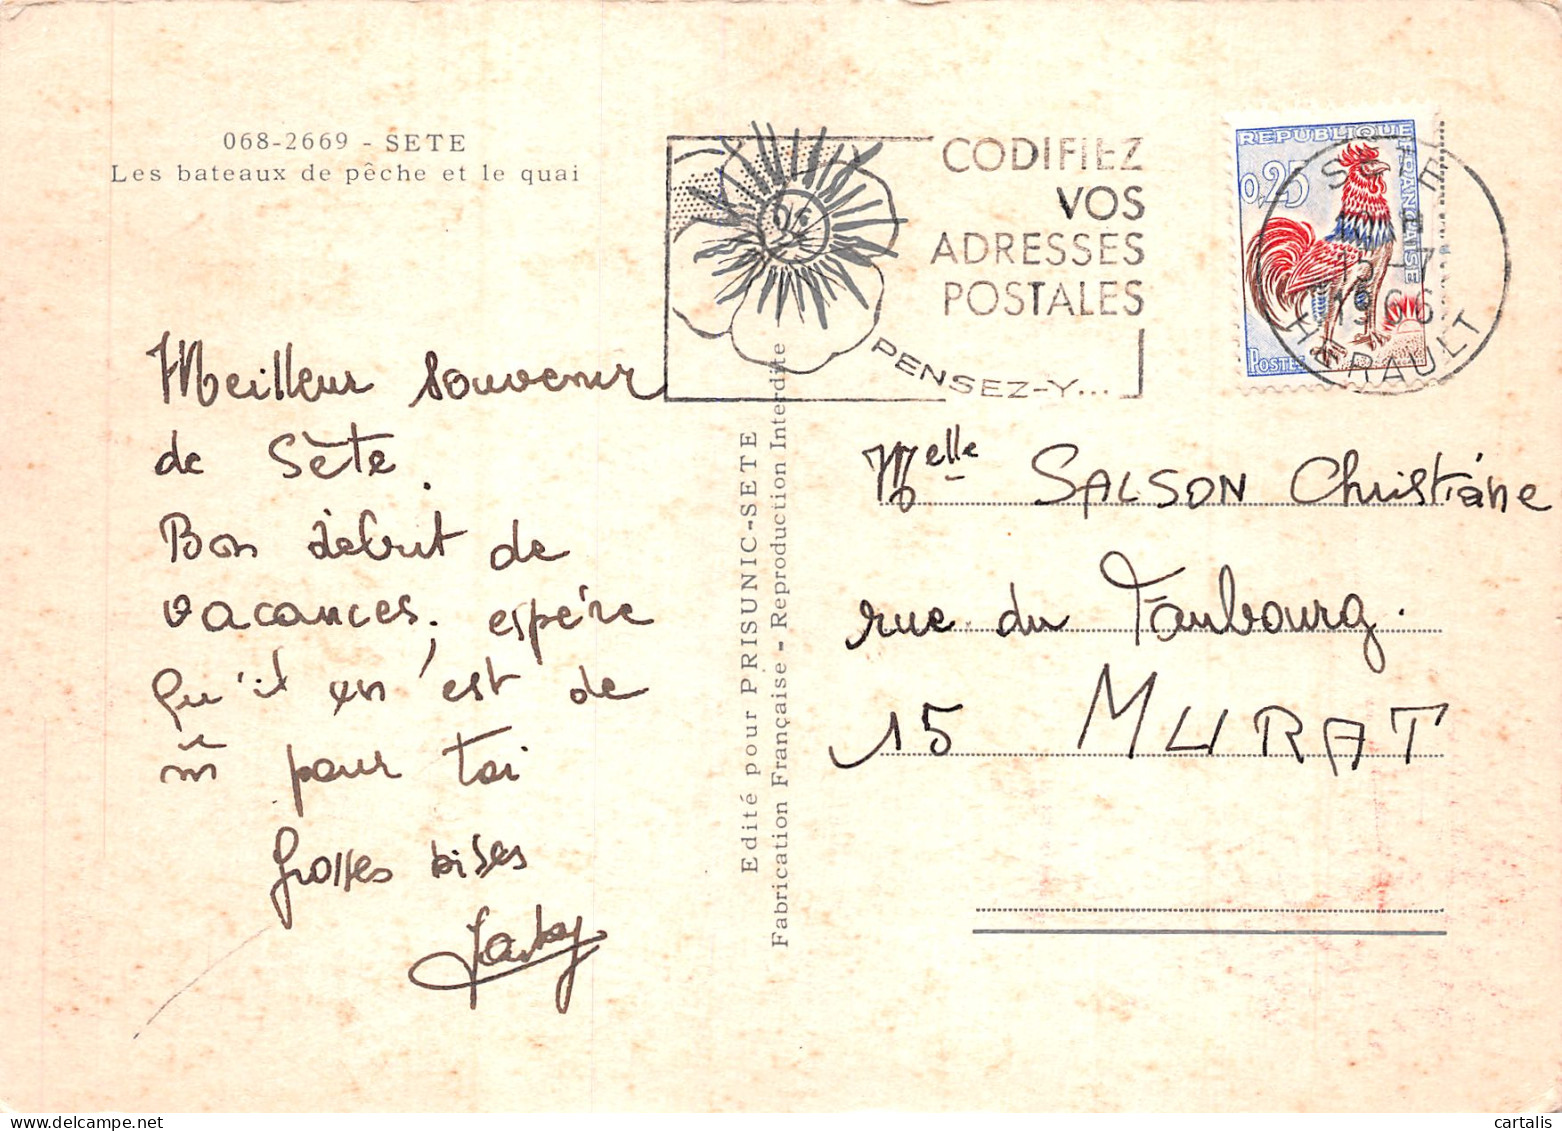 068-2669 - SETE
Les bateaux de pêche et le quai
CODIFIEZ
VOS
ADRESSES
POSTALES
PENSEZ-Y...
REPUBLIQUE
FRANÇAISE
0,25
POSTES
SETE
15-7
1966
HERAULT
Meilleur souvenir
de Sète.
Bon début de
vacances, espère
qu'il en est de
m̂ pour toi
Grosses bises
Jacky
Edité pour PRISUNIC-SETE
Fabrication Française - Reproduction Interdite
Melle SALSON Christiane
rue du Faubourg.
15 MURAT
cartalis